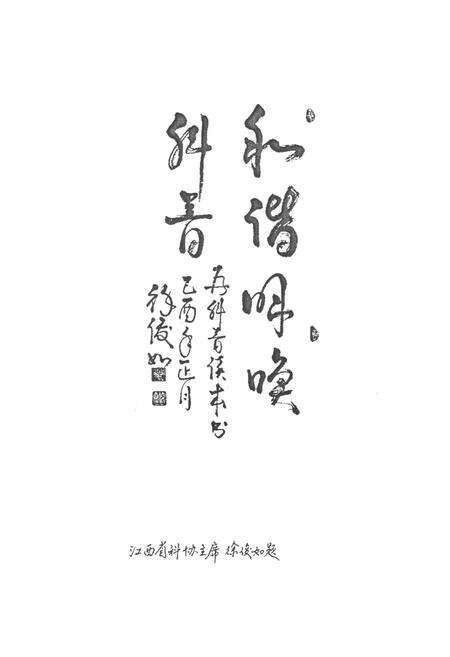 和谐呼唤
科普
科普读本书
乙酉年正月
徐俊如
江西省科协主席 徐俊如题